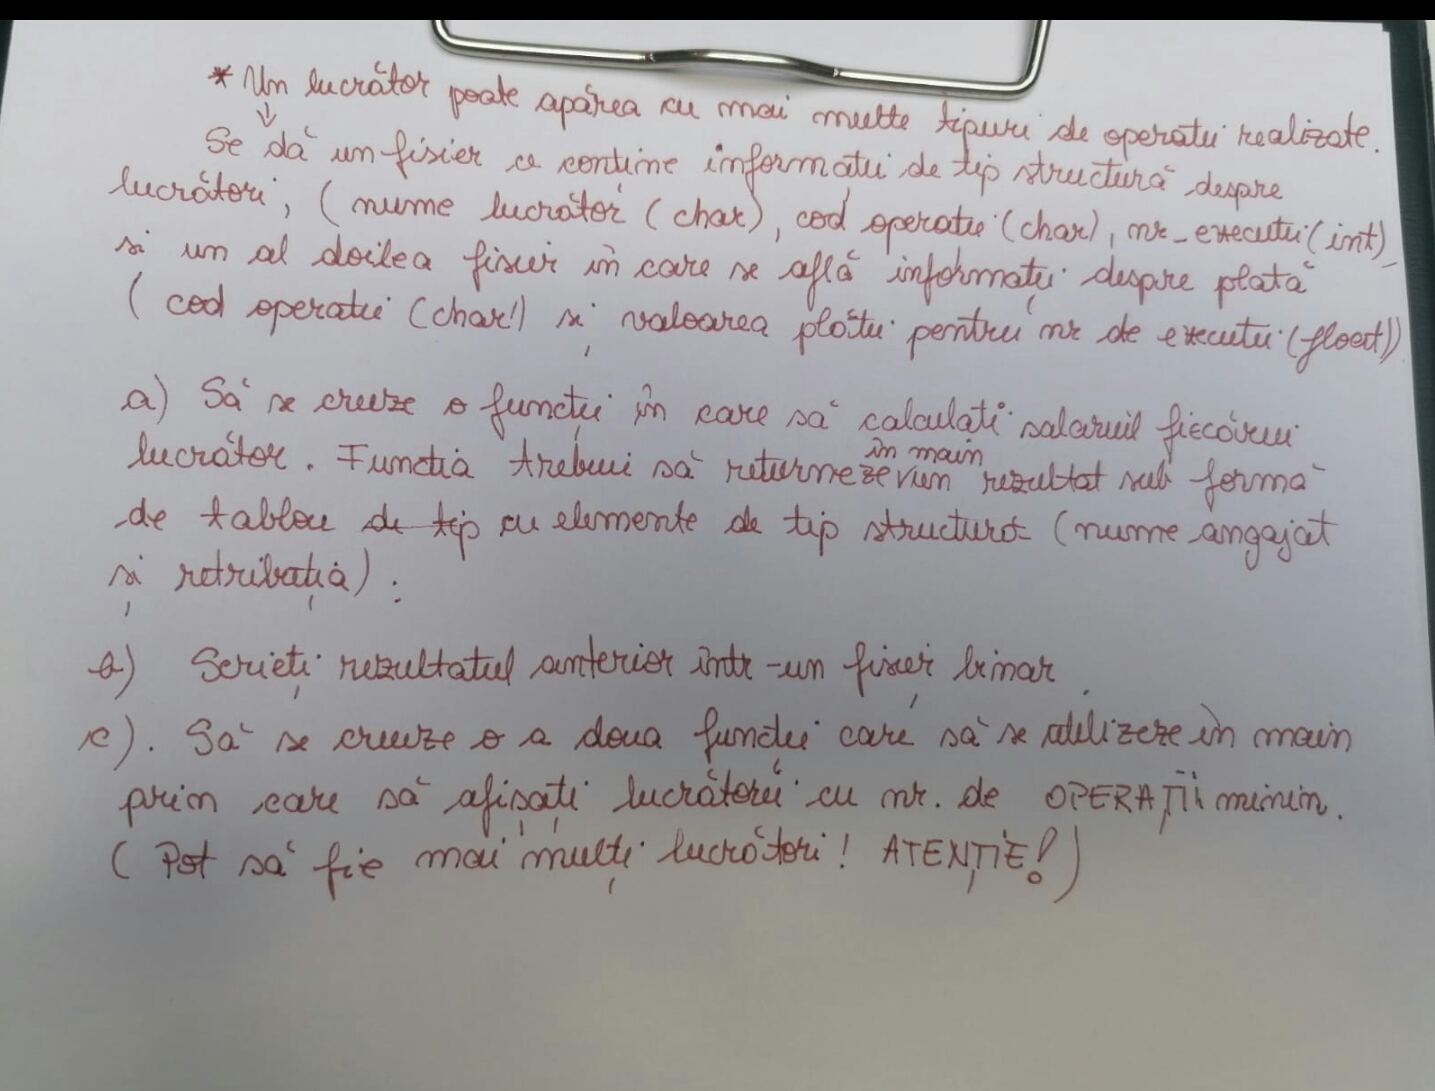 * Un lucrător poate apărea cu mai multe tipuri de operatii realizate.
Se dă un fisier ce contine informatii de tip structură despre
lucrători, (nume lucrător (char), cod operatie (char), nr_executii (int)
si un al doilea fisier în care se află informații despre plată
( cod operatie (char) și valoarea plătii pentru nr de executii (float))
a) Să se creeze o funcții în care să calculati salariul fiecărui
lucrător. Functia trebui să returneze în main un rezultat sub formă
de tablou de tip cu elemente de tip structură (nume angajat
și retribuția).
b) Scrieți rezultatul anterior într-un fișier binar.
c). Să se creeze o a doua functii care să se utilizeze în main
prin care să afișați lucrătorii cu nr. de OPERAȚII minim.
( Pot să fie mai mulți lucrători! ATENȚIE!)